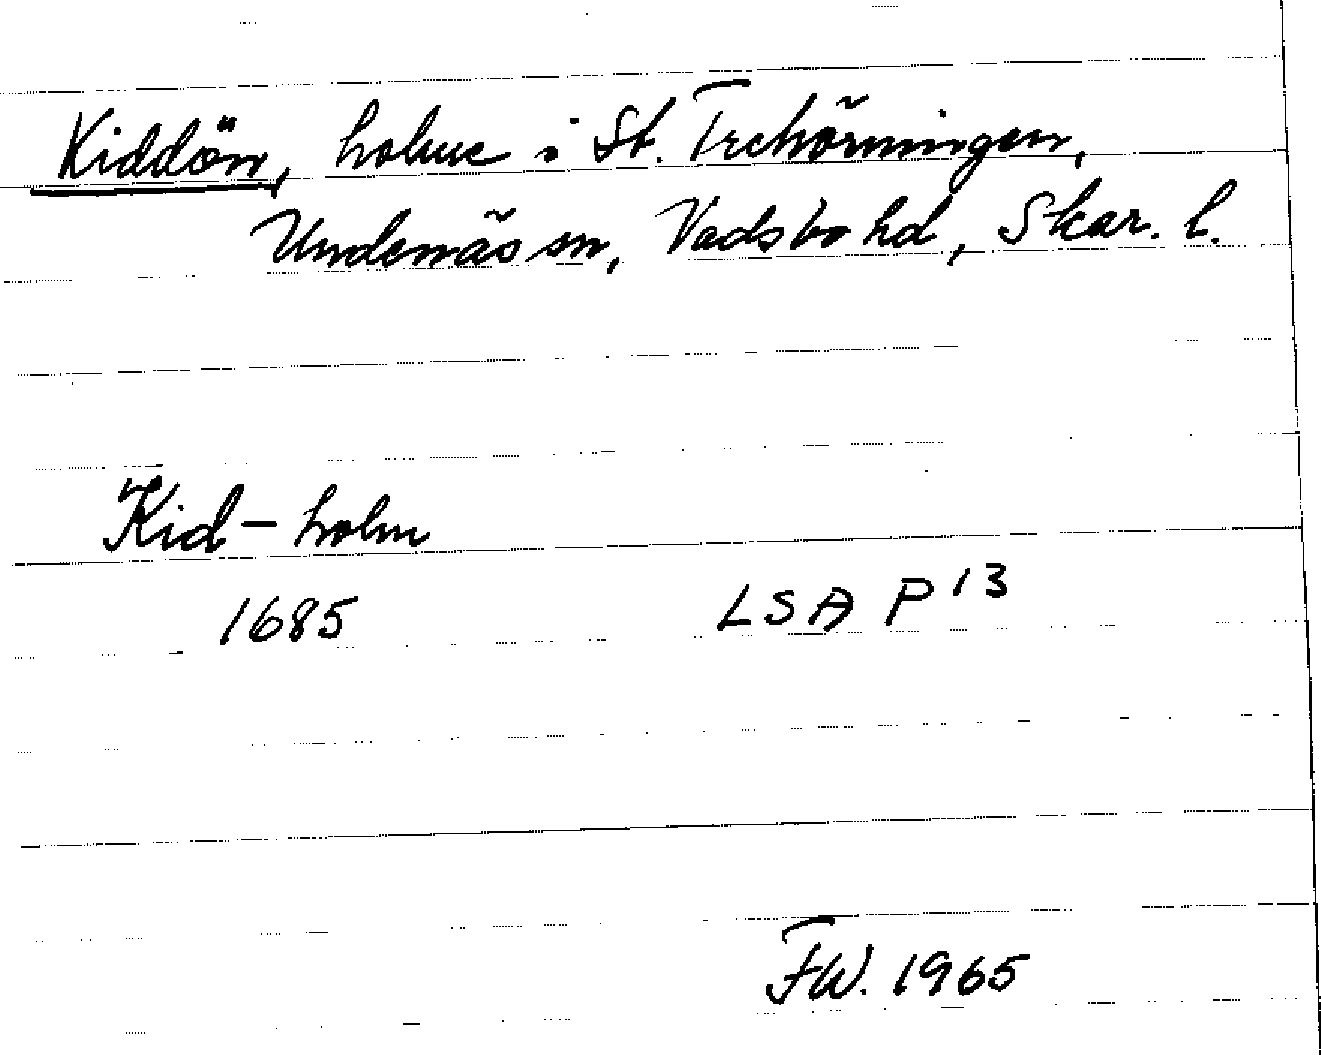 Kiddön, holme i St. Trehörningen,
Undenäs sn, Vadsbo hd, Skar. l.
Kid-holm
1685 LSA P 13
FW. 1965